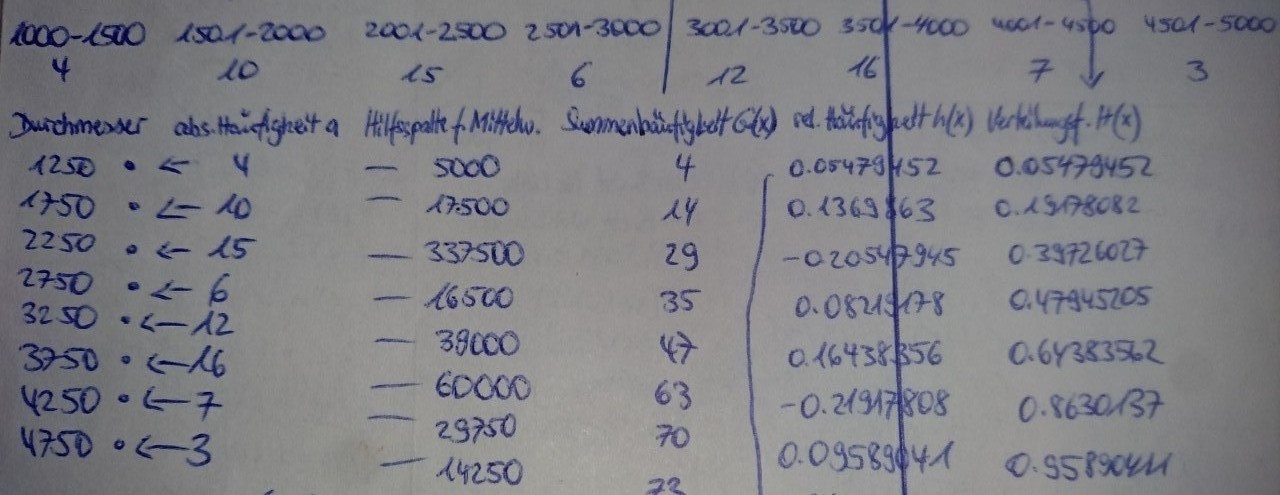 1000-1500 1501-2000 2001-2500 2501-3000 3001-3500 3501-4000 4001-4500 4501-5000
4 10 15 6 12 16 7 3
Durchmesser abs.Häufigkeit a Hilfsspalte f. Mittelw. Summenhäufigkeit G(x) rel. Häufigkeit h(x) Verteilungsf. H(x)
1250 • ← 4 — 5000 4 0.05479452 0.05479452
1750 • ← 10 — 17500 14 0.1369863 0.19178082
2250 • ← 15 — 337500 29 -0.20547945 0.39726027
2750 • ← 6 — 16500 35 0.08219178 0.47945205
3250 • ← 12 — 39000 47 0.16438356 0.64383562
3750 • ← 16 — 60000 63 -0.21917808 0.8630137
4250 • ← 7 — 29750 70 0.09589041 0.95890411
4750 • ← 3 — 14250 73